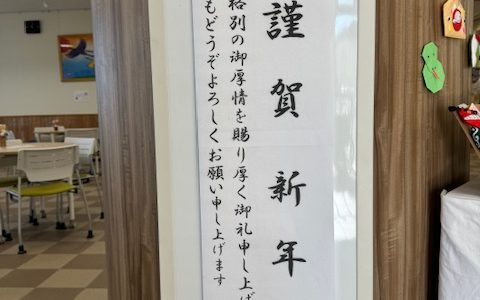 謹賀新年
格別の御厚情を賜り厚く御礼申し上げ
もどうぞよろしくお願い申し上げます